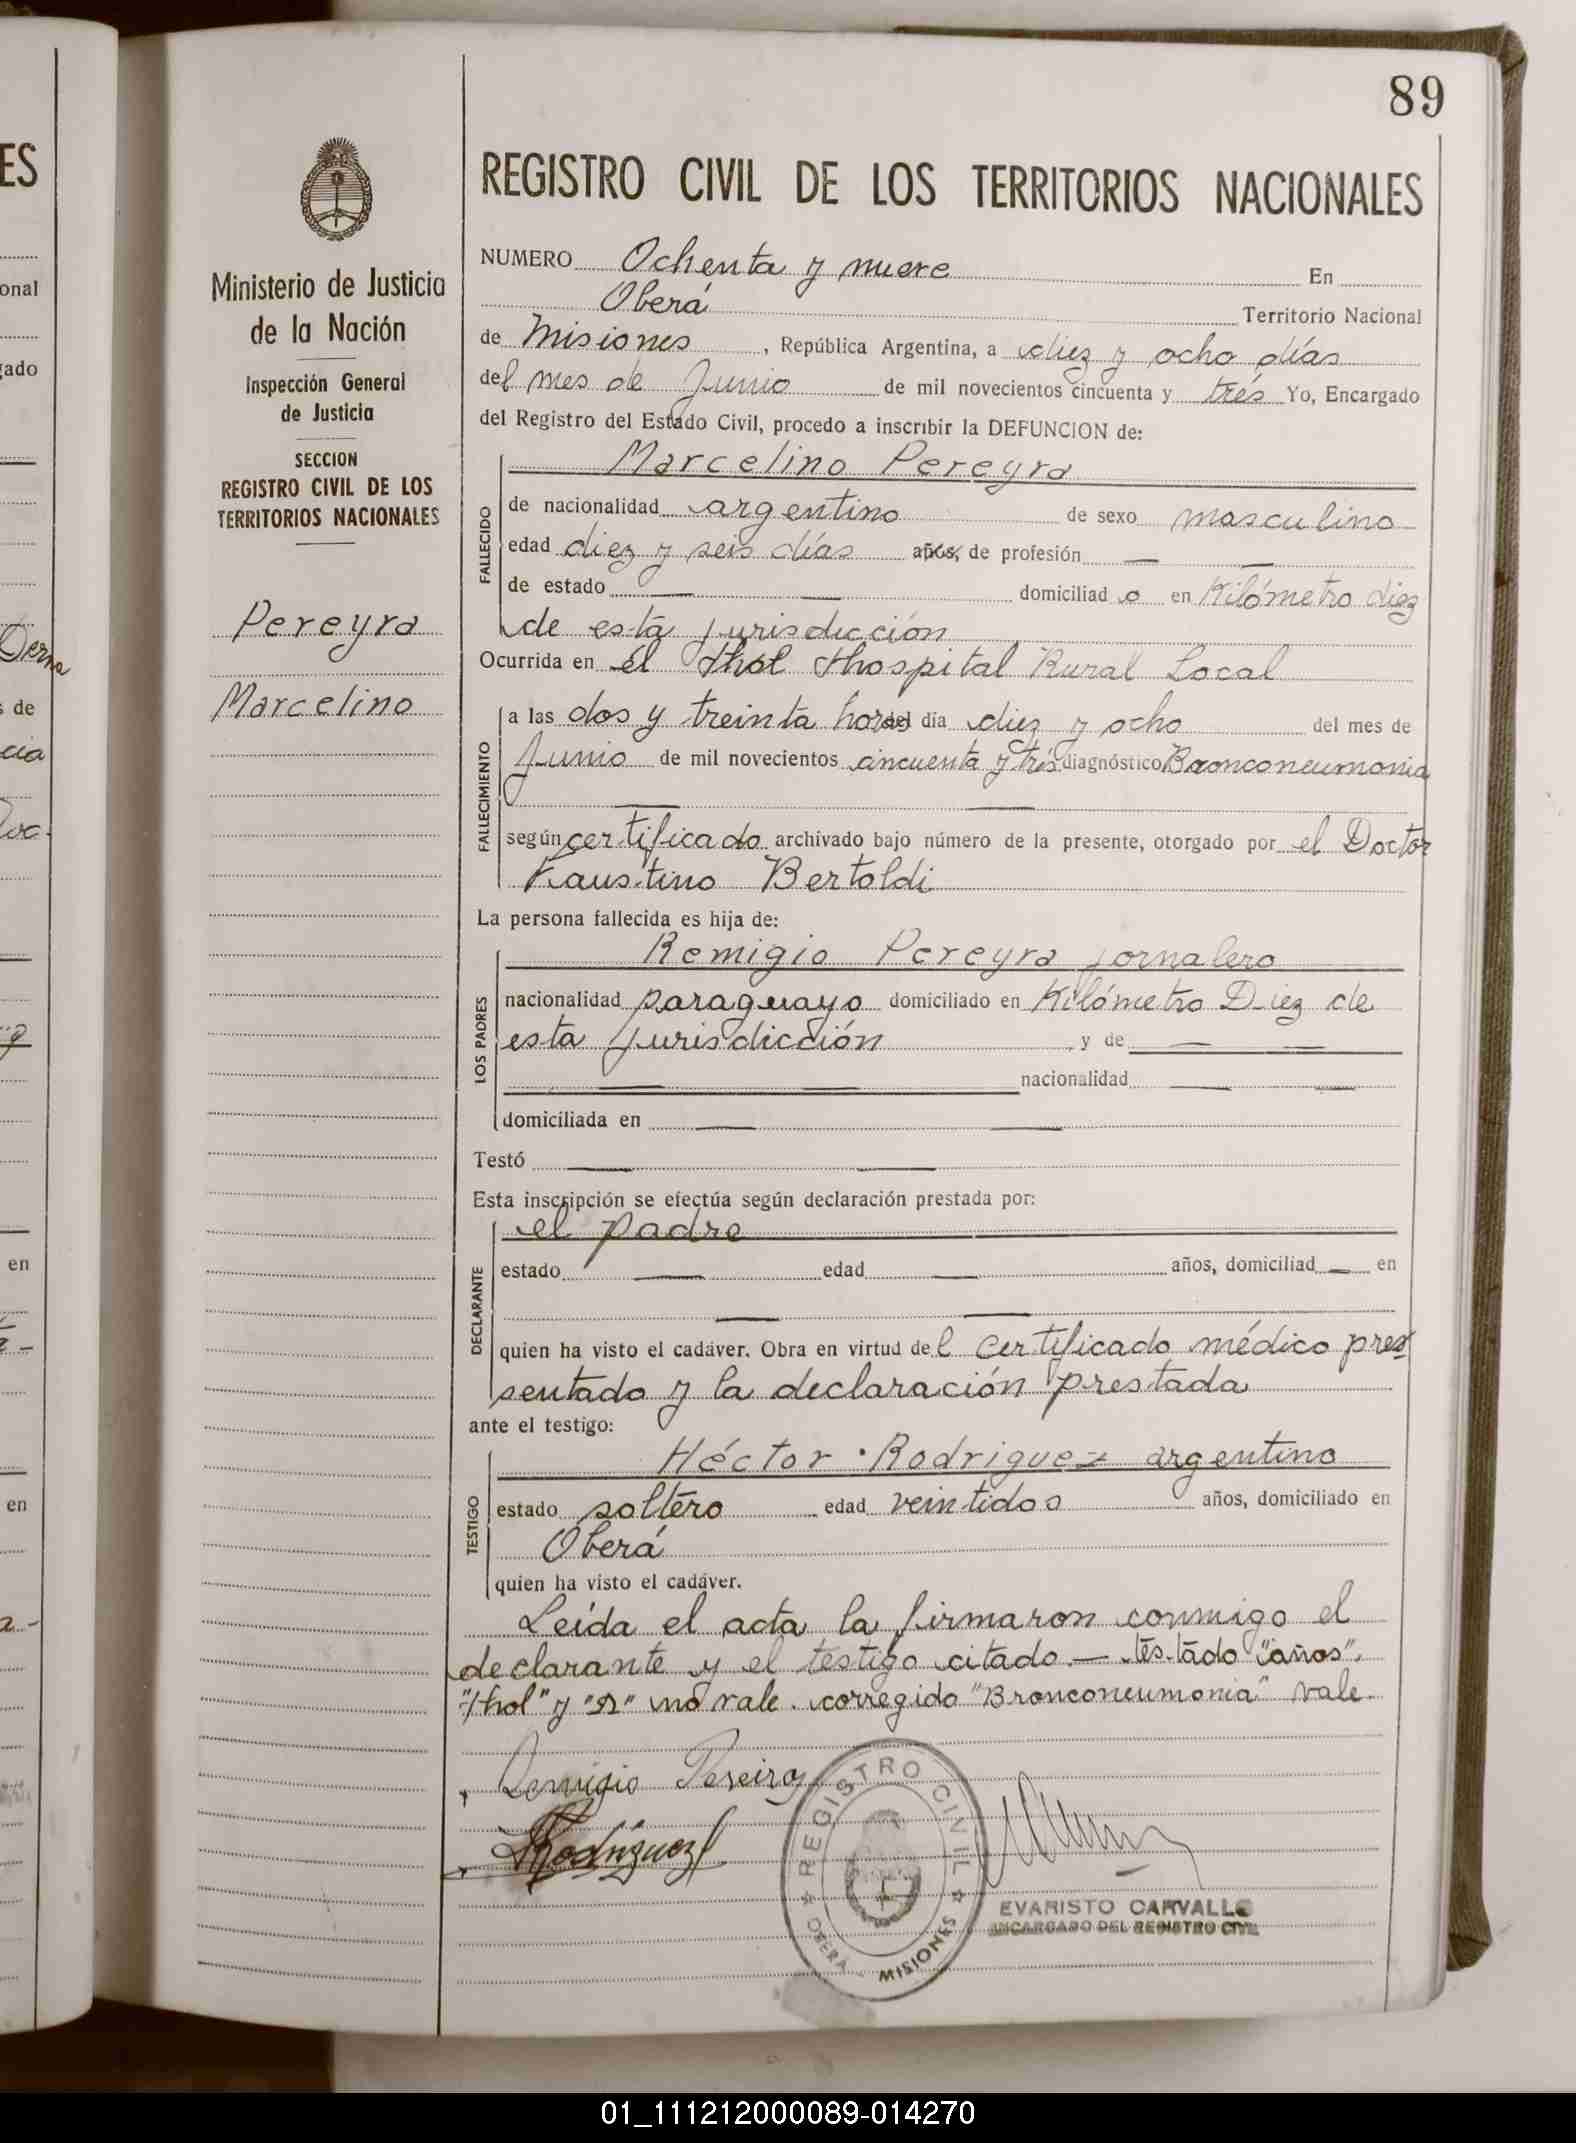 89
REGISTRO CIVIL DE LOS TERRITORIOS NACIONALES
Ministerio de Justicia
de la Nación
Inspección General
de Justicia
SECCION
REGISTRO CIVIL DE LOS
TERRITORIOS NACIONALES
Pereyra
Marcelino
NUMERO Ochenta y nueve En
Oberá Territorio Nacional
de Misiones, República Argentina, a diez y ocho días
del mes de Junio de mil novecientos cincuenta y trés Yo, Encargado
del Registro del Estado Civil, procedo a inscribir la DEFUNCION de:
FALLECIDO
Marcelino Pereyra
de nacionalidad argentino de sexo masculino
edad diez y seis días años, de profesión —
de estado — — domiciliado en Kilómetro diez
de esta jurisdicción
Ocurrida en el Hhol Hhospital Rural Local
FALLECIMIENTO
a las dos y treinta horas del día diez y ocho del mes de
Junio de mil novecientos cincuenta y trés diagnóstico Bronconeumonia
— —
según certificado archivado bajo número de la presente, otorgado por el Doctor
Faustino Bertoldi
La persona fallecida es hija de:
LOS PADRES
Remigio Pereyra jornalero
nacionalidad paraguayo domiciliado en Kilómetro Diez de
esta jurisdicción y de — —
— — nacionalidad — —
domiciliada en — —
Testó — —
Esta inscripción se efectúa según declaración prestada por:
DECLARANTE
el padre
estado — edad — años, domiciliad — en
— —
quien ha visto el cadáver. Obra en virtud del certificado médico pres
sentado y la declaración prestada
ante el testigo:
TESTIGO
Héctor Rodriguez argentino
estado soltero edad veintidos años, domiciliado en
Oberá
quien ha visto el cadáver.
Leída el acta la firmaron conmigo el
declarante y el testigo citado.— testado "años".
"Hhol" y "s" no vale. corregido "Bronconeumonia" vale.
Remigio Pereira
Rodríguez
REGISTRO CIVIL
OBERA MISIONES
EVARISTO CARVALLO
ENCARGADO DEL REGISTRO CIVIL
01_111212000089-014270